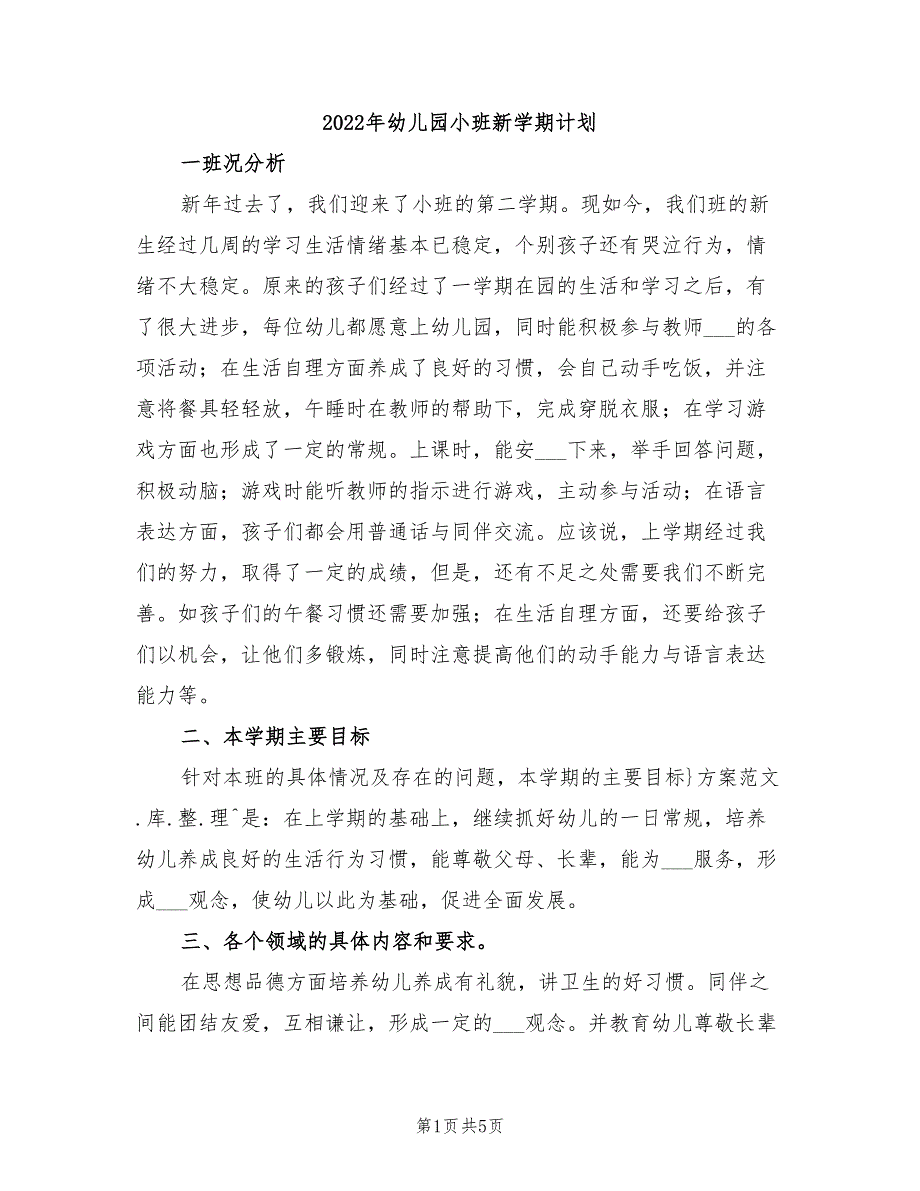 2022年幼儿园小班新学期计划
一班况分析
新年过去了，我们迎来了小班的第二学期。现如今，我们班的新
生经过几周的学习生活情绪基本已稳定，个别孩子还有哭泣行为，情
绪不大稳定。原来的孩子们经过了一学期在园的生活和学习之后，有
了很大进步，每位幼儿都愿意上幼儿园，同时能积极参与教师___的各
项活动；在生活自理方面养成了良好的习惯，会自己动手吃饭，并注
意将餐具轻轻放，午睡时在教师的帮助下，完成穿脱衣服；在学习游
戏方面也形成了一定的常规。上课时，能安___下来，举手回答问题，
积极动脑；游戏时能听教师的指示进行游戏，主动参与活动；在语言
表达方面，孩子们都会用普通话与同伴交流。应该说，上学期经过我
们的努力，取得了一定的成绩，但是，还有不足之处需要我们不断完
善。如孩子们的午餐习惯还需要加强；在生活自理方面，还要给孩子
们以机会，让他们多锻炼，同时注意提高他们的动手能力与语言表达
能力等。
二、本学期主要目标
针对本班的具体情况及存在的问题，本学期的主要目标}方案范文
.库.整.理^是：在上学期的基础上，继续抓好幼儿的一日常规，培养
幼儿养成良好的生活行为习惯，能尊敬父母、长辈，能为___服务，形
成___观念，使幼儿以此为基础，促进全面发展。
三、各个领域的具体内容和要求。
在思想品德方面培养幼儿养成有礼貌，讲卫生的好习惯。同伴之
间能团结友爱，互相谦让，形成一定的___观念。并教育幼儿尊敬长辈
第1页共5页